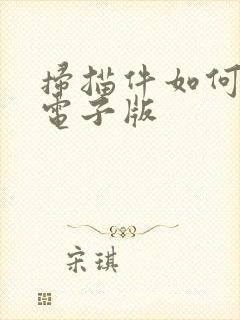 掃描件如何
電子版
宋琪